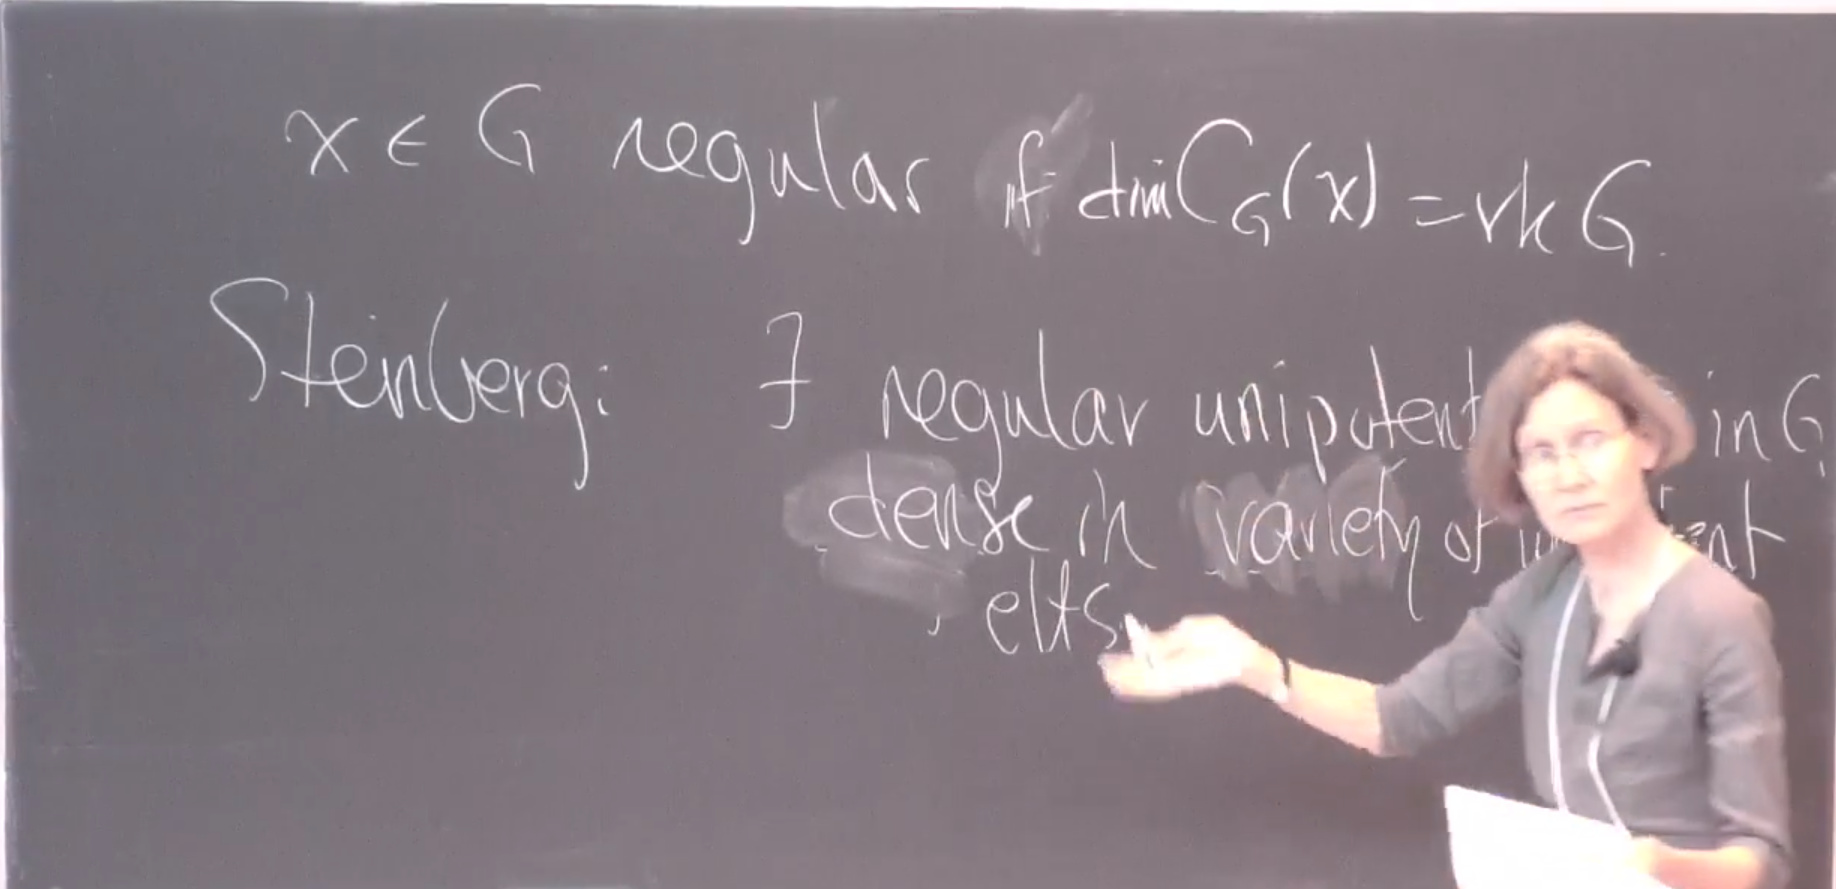 x ∈ G regular if dim C_G(x) = rk G.
Steinberg: ∃ regular unipotent in G,
dense in variety of
elts.